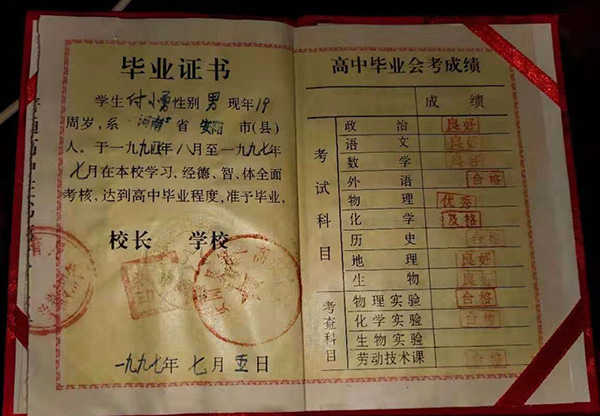 毕业证书
学生付小勇性别男现年19
周岁，系河南省安阳市(县)
人。于一九九四年八月至一九九七年
七月在本校学习、经德、智、体全面
考核，达到高中毕业程度，准予毕业，
校长 学校
一九九七年七月五日
高中毕业会考成绩
成绩
考试科目
政治 良好
语文 良好
数学 良好
外语 合格
物理 优秀
化学 及格
历史 合格
地理 良好
生物 良好
考查科目
物理实验 合格
化学实验 合格
生物实验
劳动技术课 合格